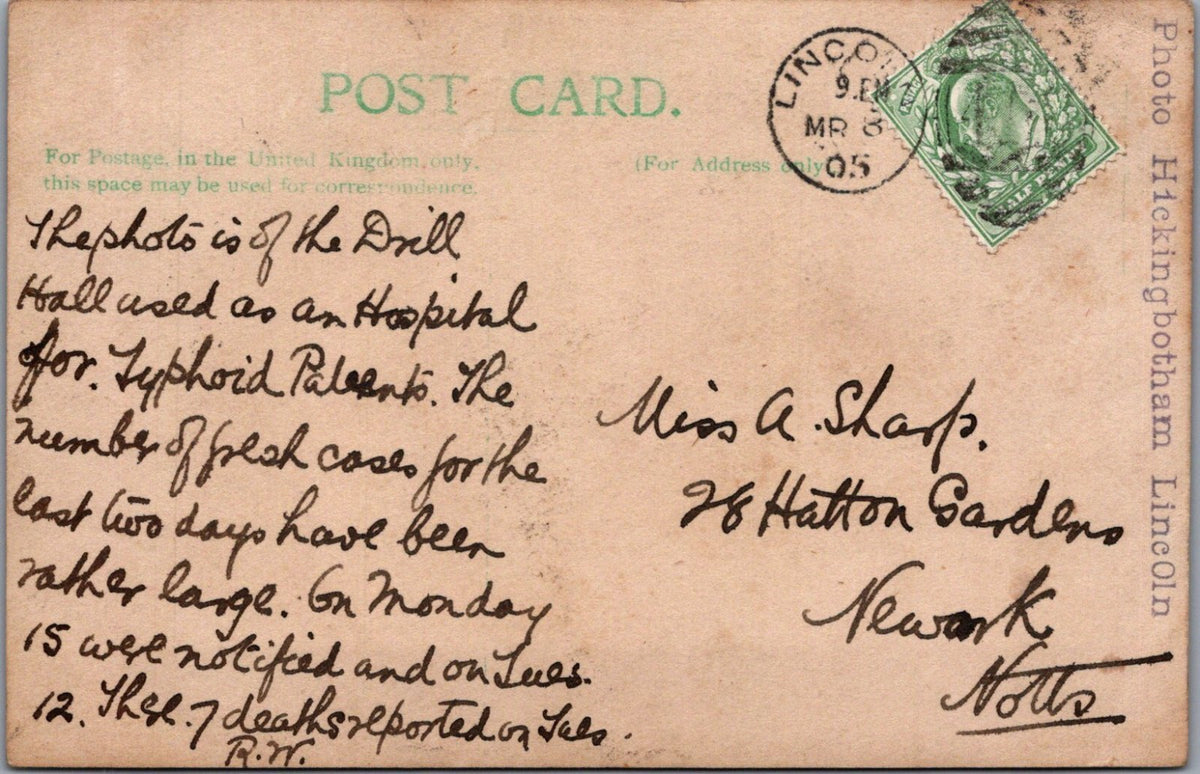 POST CARD.
For Postage, in the United Kingdom, only,
this space may be used for correspondence.
(For Address only)
LINCOLN
9.
MR 8
05
HALF PENNY
Photo Hickingbotham Lincoln
The photo is of the Drill
Hall used as an Hospital
for. Typhoid Patients. The
number of fresh cases for the
last two days have been
rather large. On Monday
15 were notified and on Tues.
12. 7 deaths reported on Tues.
R.W.
Miss A. Sharp.
28 Hatton Gardens
Newark
Notts